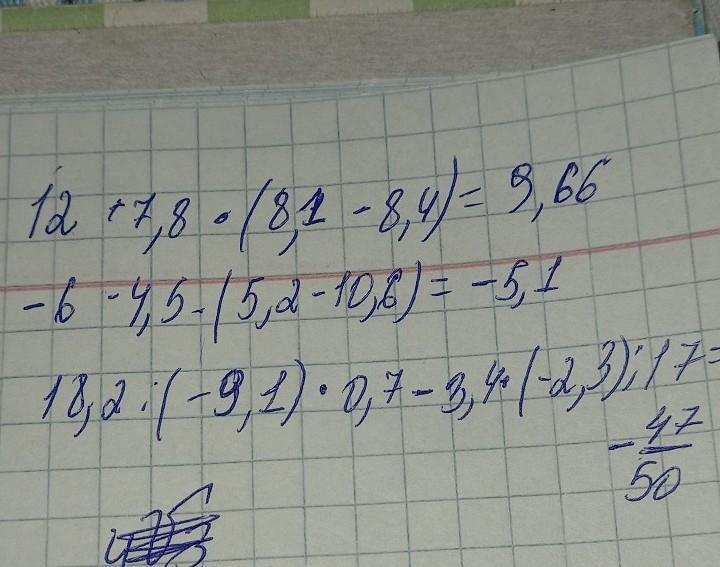 12 +7,8 · (8,1 - 8,4) = 9,66
-6 -4,5 - (5,2 - 10,6) = -5,1
18,2 : (-9,1) · 0,7 - 3,4 · (-2,3) : 17 =
- 47/50